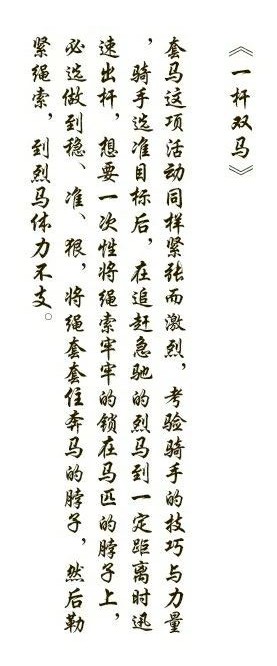 《一杆双马》
套马这项活动同样紧张而激烈，考验骑手的技巧与力量
，骑手选准目标后，在追赶急驰的烈马到一定距离时迅
速出杆，想要一次性将绳索牢牢的锁在马匹的脖子上，
必选做到稳、准、狠，将绳套套住奔马的脖子，然后勒
紧绳索，到烈马体力不支。